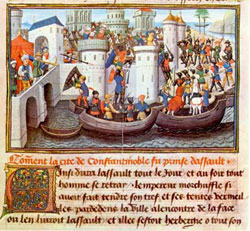 Coment la cite de Constantinoble fu prinse dassault
Ainsi dura lassault tout le Jour et au soir tout
homme se retray lempereur morchufle si
avoit fait tendre son tref et ses tentes vermeil
les par dedens la ville alencontre de la face
ou len livroit lassault et illec sestoit herbergie o tout son